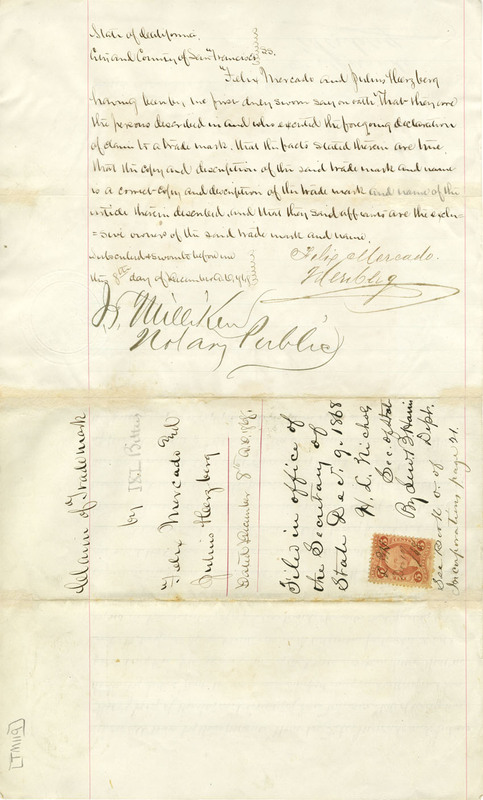 State of California
City and County of San Francisco } ss.
Felix Mercado and Julius Herzberg
having been by me first duly sworn say on oath That they are
the persons described in and who executed the foregoing declaration
of claim to a trade mark. that the facts stated therein are true,
that the copy and description of the said trade mark and name
is a correct copy and description of the trade mark and name of the
article therein described and that they said affiants are the exclu-
=sive owners of the said trade mark and name.
Subscribed & sworn to before me
this 8th day of December A.D. 1868
Felix Mercado.
J Herzberg
Milliken
Notary Public
Claim of Trade mark
by
Felix Mercado and
Julius Herzberg
Dated December 8th A.D. 1868.
Filed in office of
the Secretary of
State Dec. 9. 1868
H. L. Nichols
Sec. of State
By Lew B Harris
Dept.
See Book 2 of
Incorporations page 21.
TM119